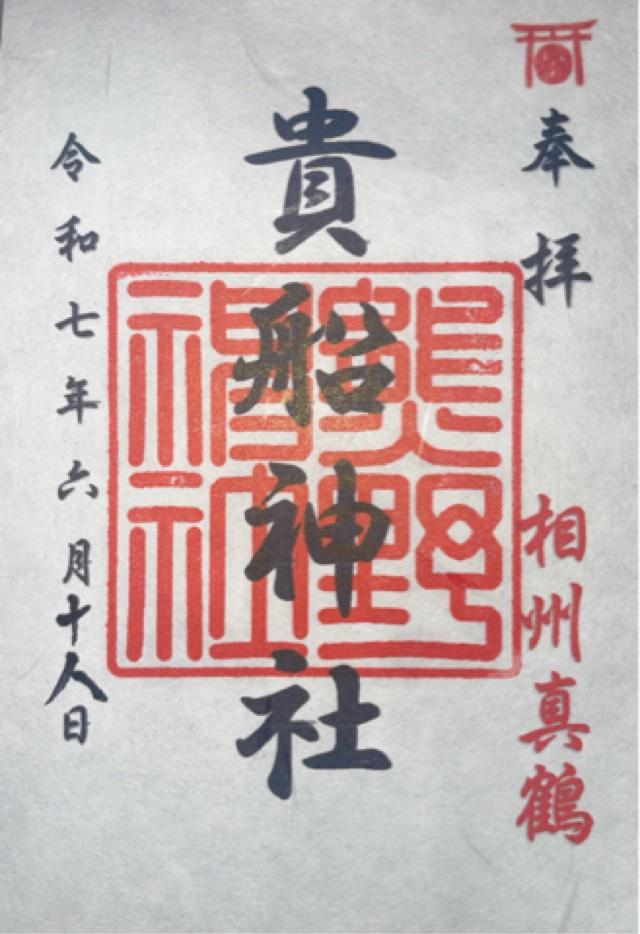 奉拝
相州真鶴
貴船神社
令和七年六月十八日